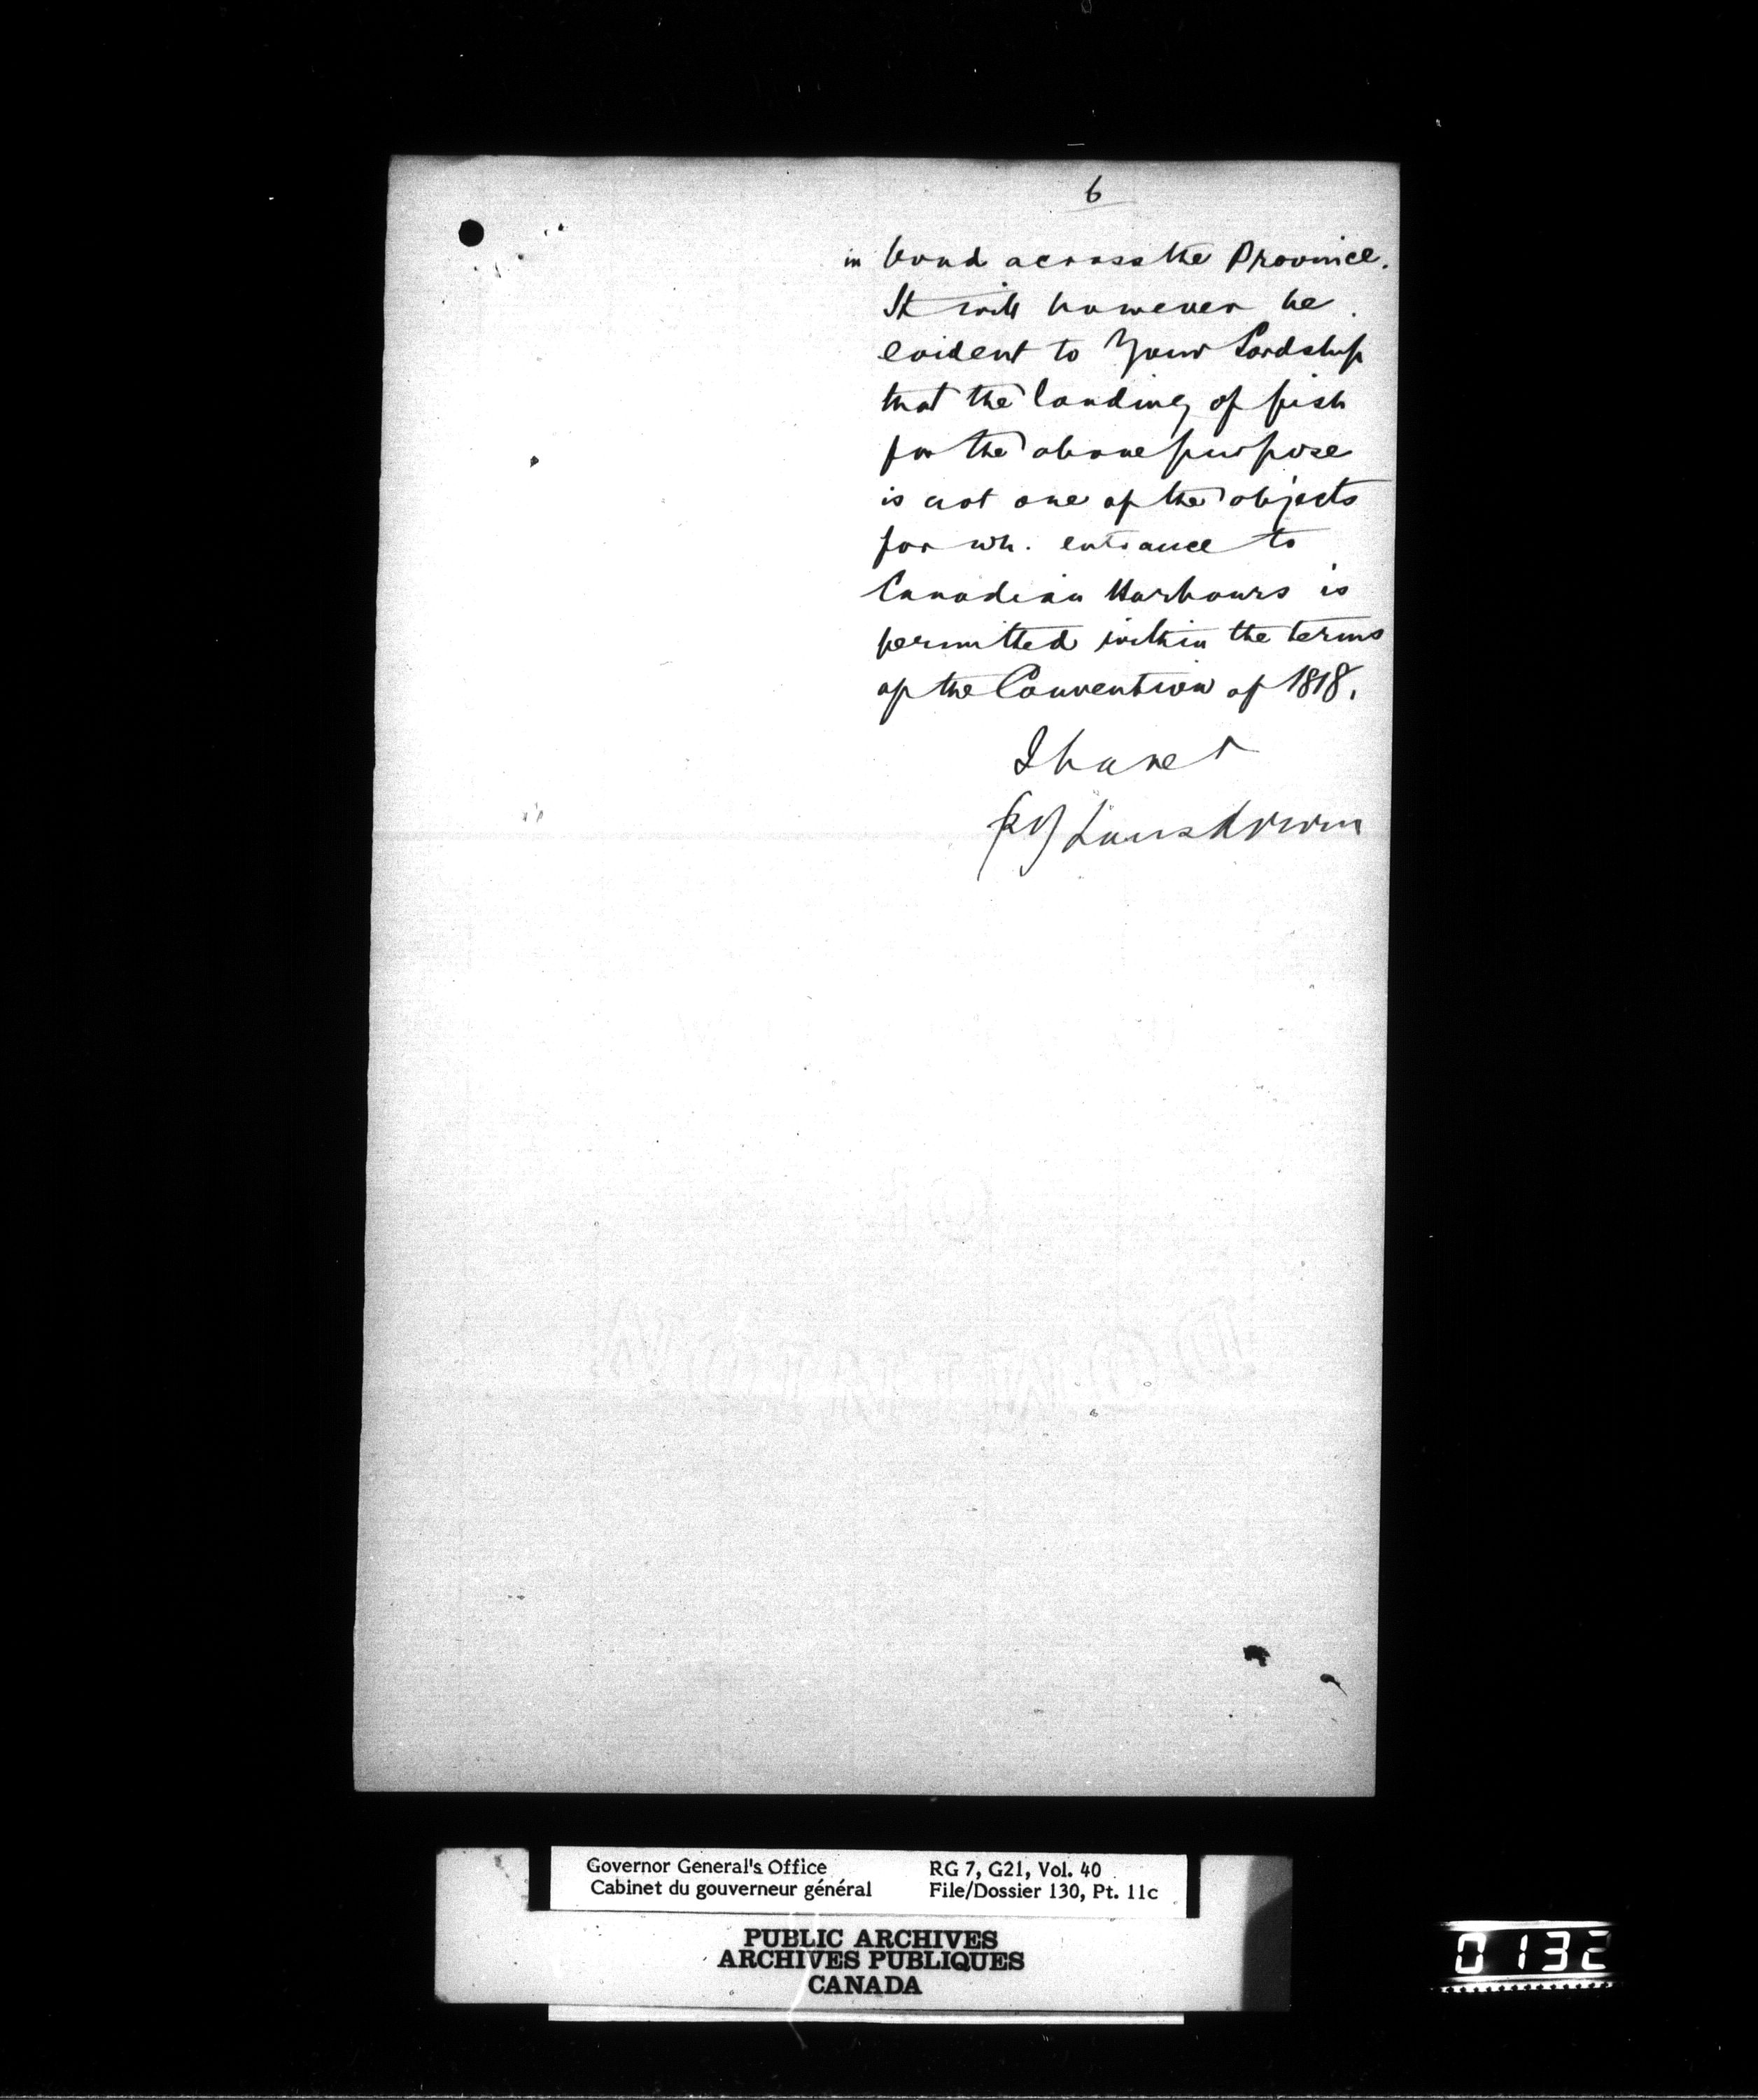 6
in bond across the Province.
It will however be
evident to Your Lordship
that the landing of fish
for the above purpose
is not one of the objects
for wh. entrance to
Canadian Harbours is
permitted within the terms
of the Convention of 1818.
I have
(sd) Lansdowne
DOMINION
Governor General's Office
Cabinet du gouverneur général
RG 7, G21, Vol. 40
File/Dossier 130, Pt. 11c
PUBLIC ARCHIVES
ARCHIVES PUBLIQUES
CANADA
0132